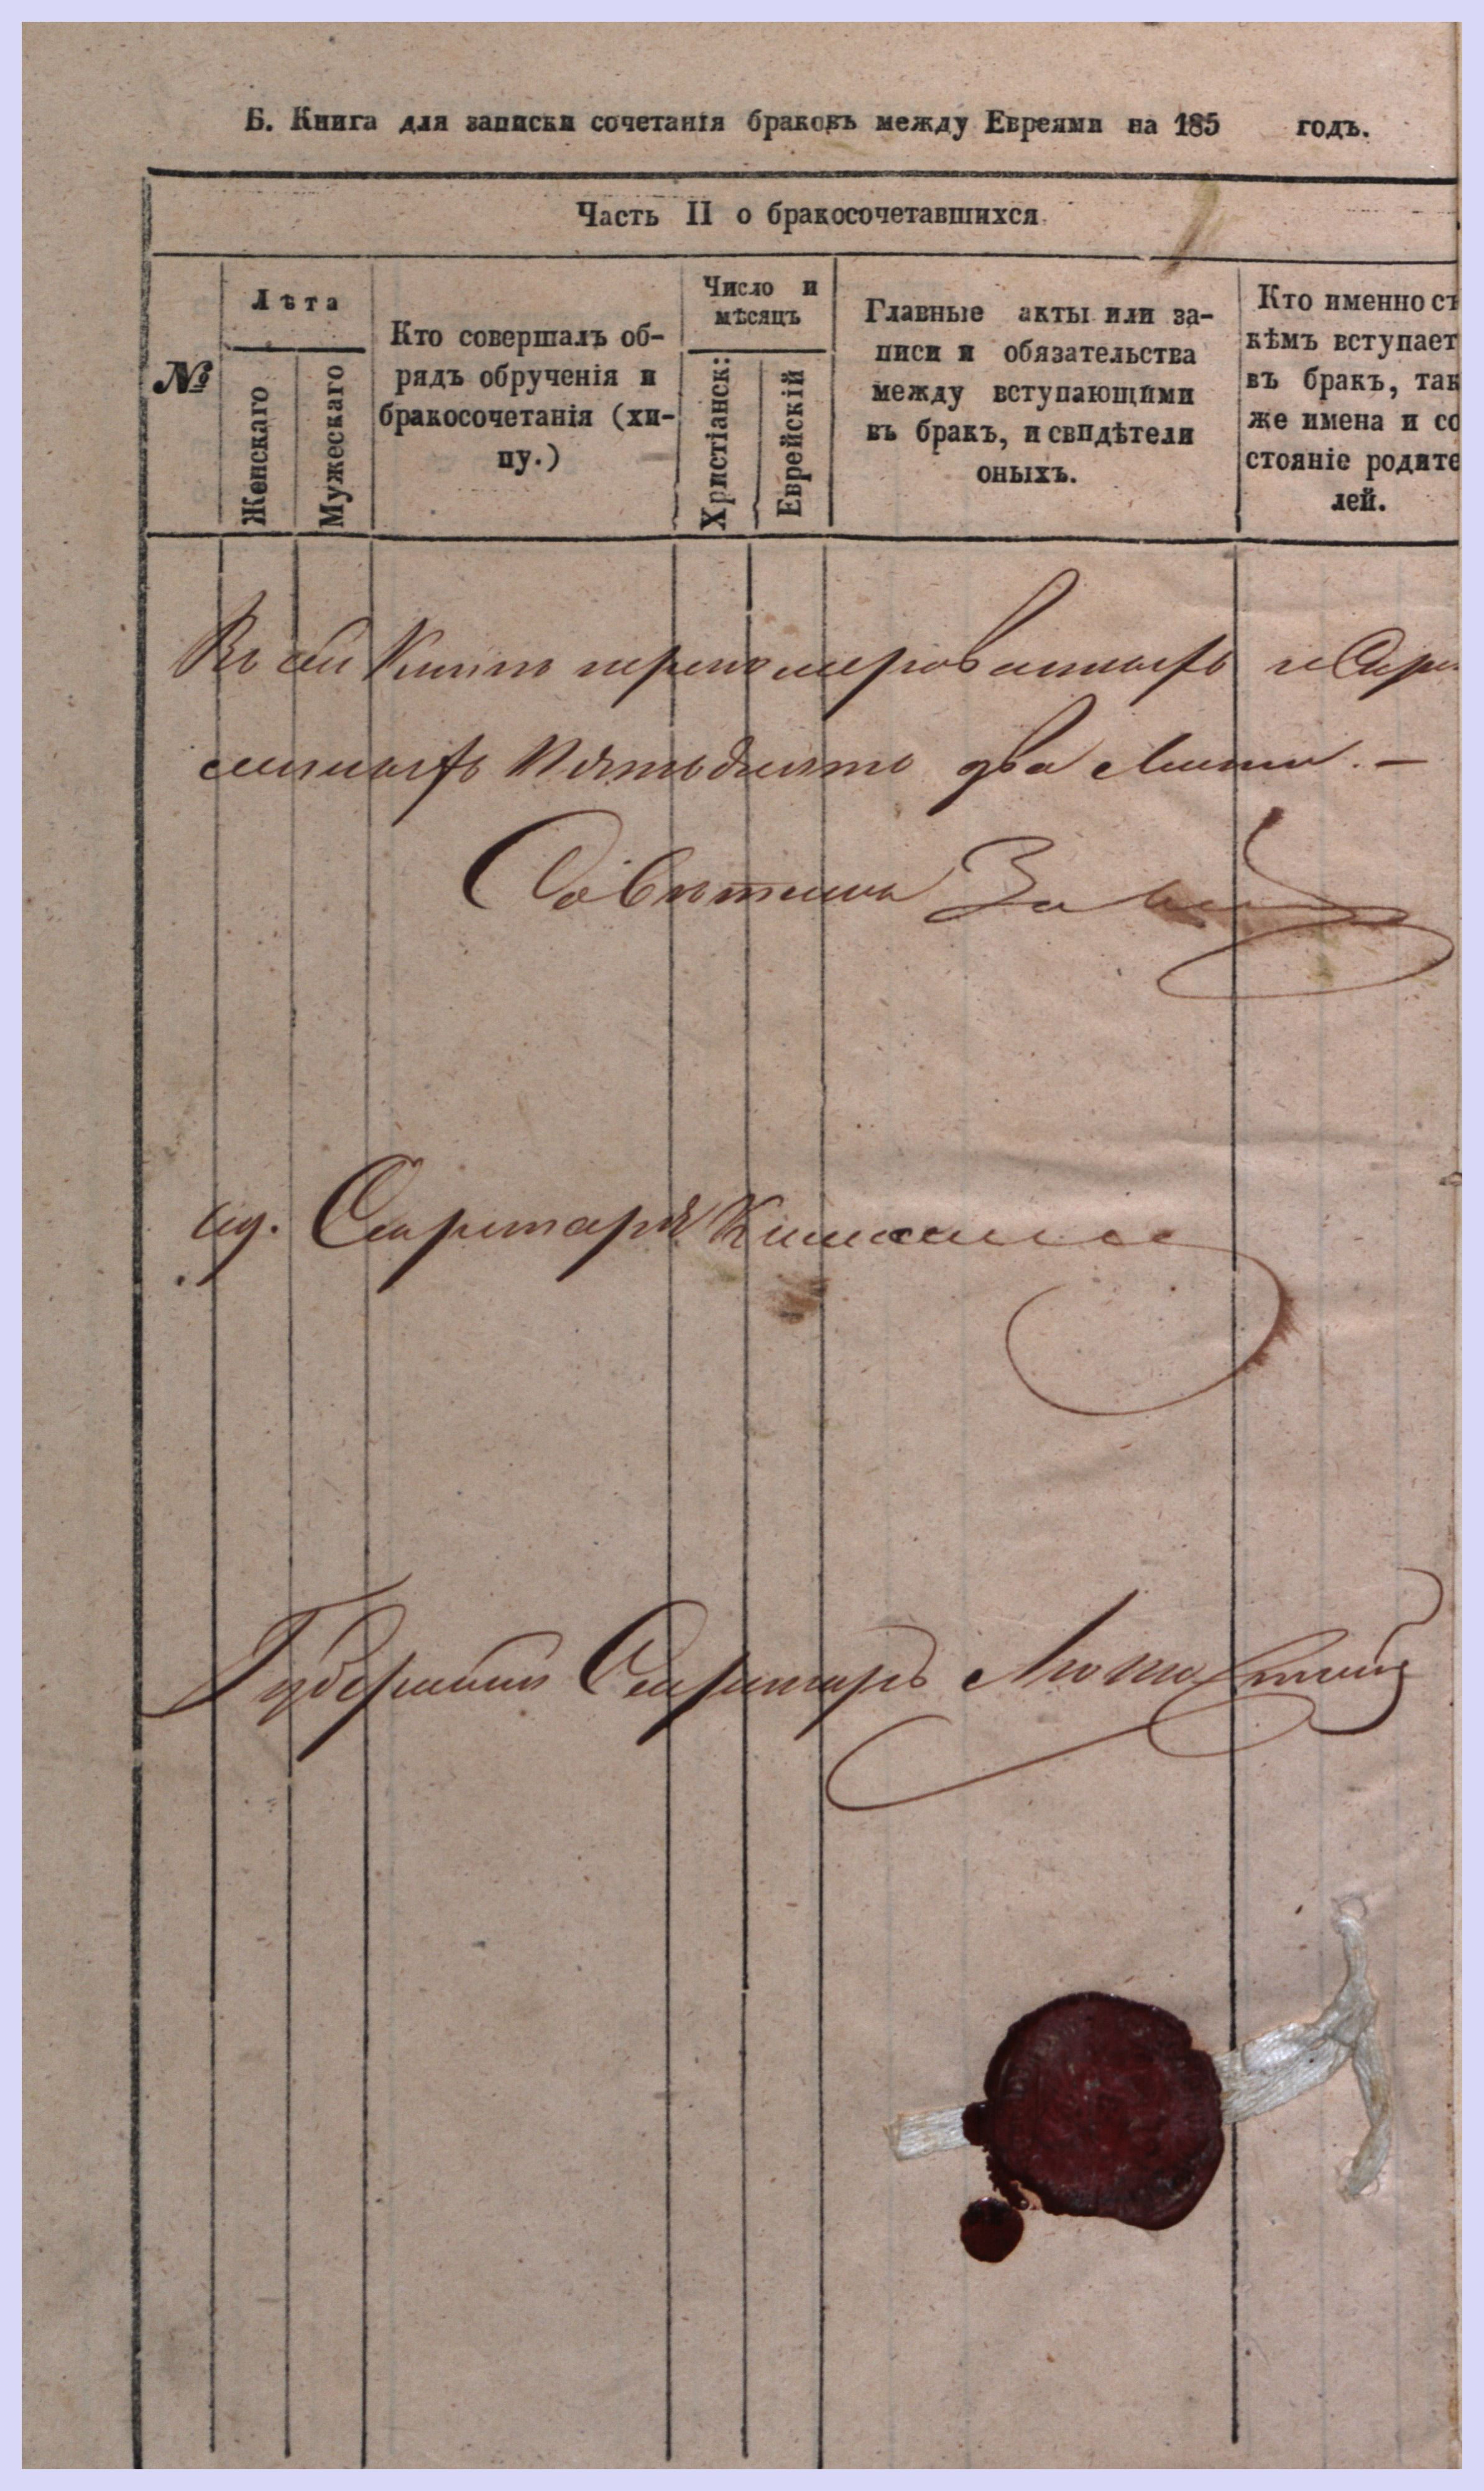 Б. Книга для записки сочетанія браковъ между Евреями на 185 годъ.
Часть II о бракосочетавшихся
№
Лѣта
Женскаго
Мужескаго
Кто совершалъ об-
рядъ обрученія и
бракосочетанія (хи-
пу.)
Число и
мѣсяцъ
Христіанск:
Еврейскій
Главные акты или за-
писи и обязательства
между вступающими
въ бракъ, и свидѣтели
оныхъ.
Кто именно съ
кѣмъ вступает
въ бракъ, так
же имена и со
стояніе родите
лей.
Въ сей Книгѣ перенумерованныхъ и Скре
пленныхъ Пятьдесятъ два листа. —
Совѣтникъ
ид. Секретаря
Губернскій Секретарь